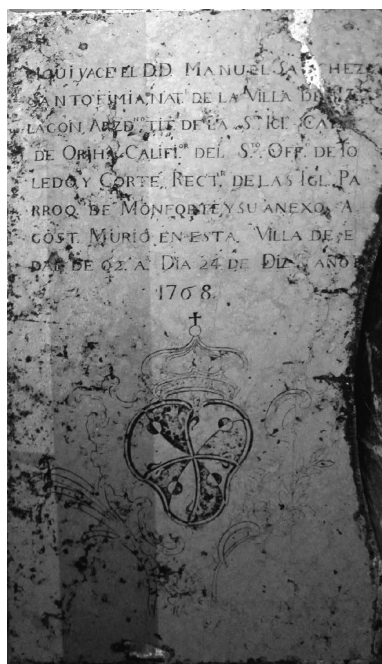 AQUI YACE EL D.D. MANUEL SANCHEZ
SANTOFIMIA NAT.L DE LA VILLA DE
LACON DE LA S.TA IGL. CAT.
DE ORIH.A CALIFI.OR DEL S.TO OFF.O DE TO
LEDO Y CORTE, RECT.R DE LAS IGL. PA
RROQ. DE MONFORTE, Y SU ANEXO A
GOST. MURIO EN ESTA VILLA DE E
DAD DE 62 A. DIA 24 DE DIZ.E AÑO
1768.